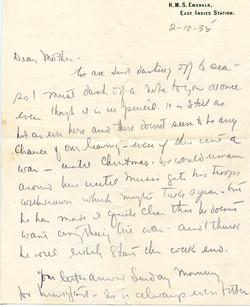 H.M.S. EMERALD,
EAST INDIES STATION.
2-10-35
Dear Mother -
We are just dashing off to sea -
so I must dash off a note to you at once
even though it is in pencil. It is still as
hot as ever here and there doesn't seem to be any
chance of our leaving - even if there isn't a
war - until Christmas. We would remain
around here until Musso gets his troops
withdrawn which might take ages - but
he has made it quite clear that he doesn't
want anything but war - and I think
he will likely start this week end.
You both arrived Sunday morning
for - he is always